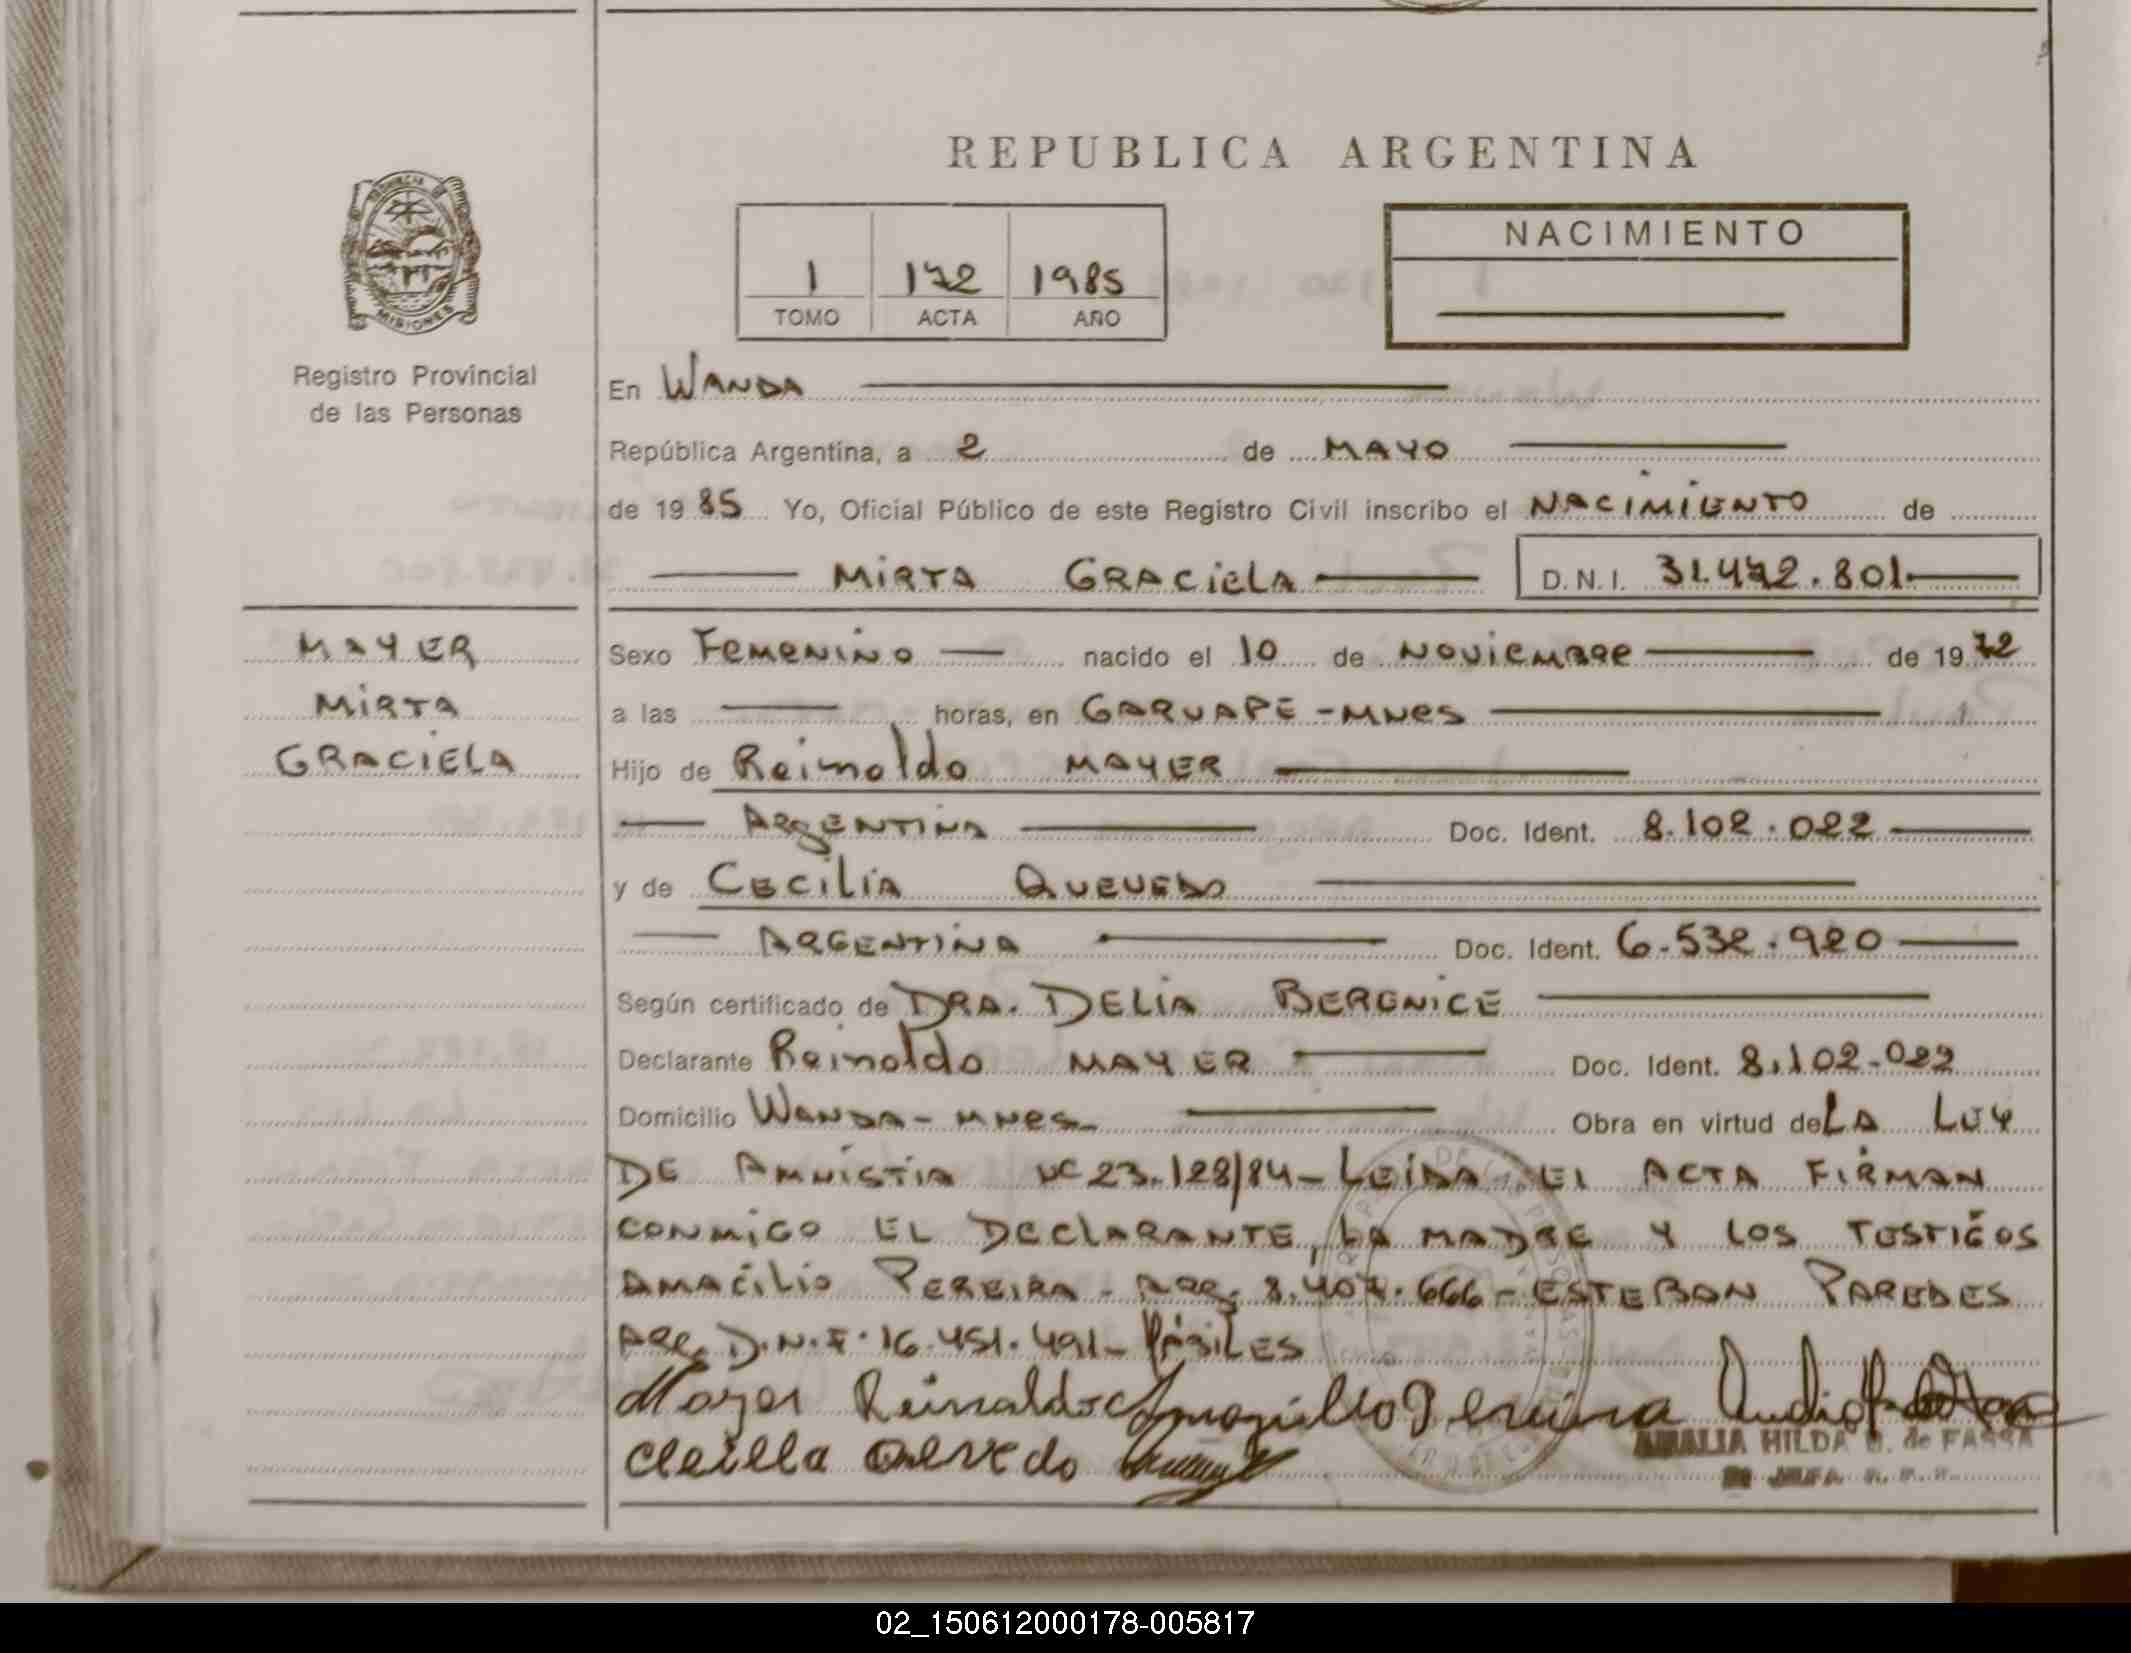 REPUBLICA ARGENTINA
PROVINCIA
MISIONES
Registro Provincial
de las Personas
1 172 1985
TOMO ACTA AÑO
NACIMIENTO
En WANDA
República Argentina, a 2 de MAYO
de 1985 Yo, Oficial Público de este Registro Civil inscribo el NACIMIENTO de
MIRTA GRACIELA D.N.I. 31.472.801
MAYER
MIRTA
GRACIELA
Sexo FEMENINO nacido el 10 de NOVIEMBRE de 1972
a las horas, en GARUAPE - MNES
Hijo de Reinoldo MAYER
ARGENTINA Doc. Ident. 8.102.022
y de CECILIA QUEVEDO
ARGENTINA Doc. Ident. 6.532.920
Según certificado de DRA. DELIA BERENICE
Declarante Reinoldo MAYER Doc. Ident. 8.102.022
Domicilio WANDA - MNES Obra en virtud de LA LEY
DE AMNISTIA Nº 23.128/84 - LEIDA EL ACTA FIRMAN
CONMIGO EL DECLARANTE, LA MADRE Y LOS TESTIGOS
AMACILIO PEREIRA - ARG. 8.407.666 - ESTEBAN PAREDES
ARG. D.N.I. 16.451.491 - HÁBILES
Mayer Reinaldo Pereira
AMALIA HILDA de FASSA
02_150612000178-005817